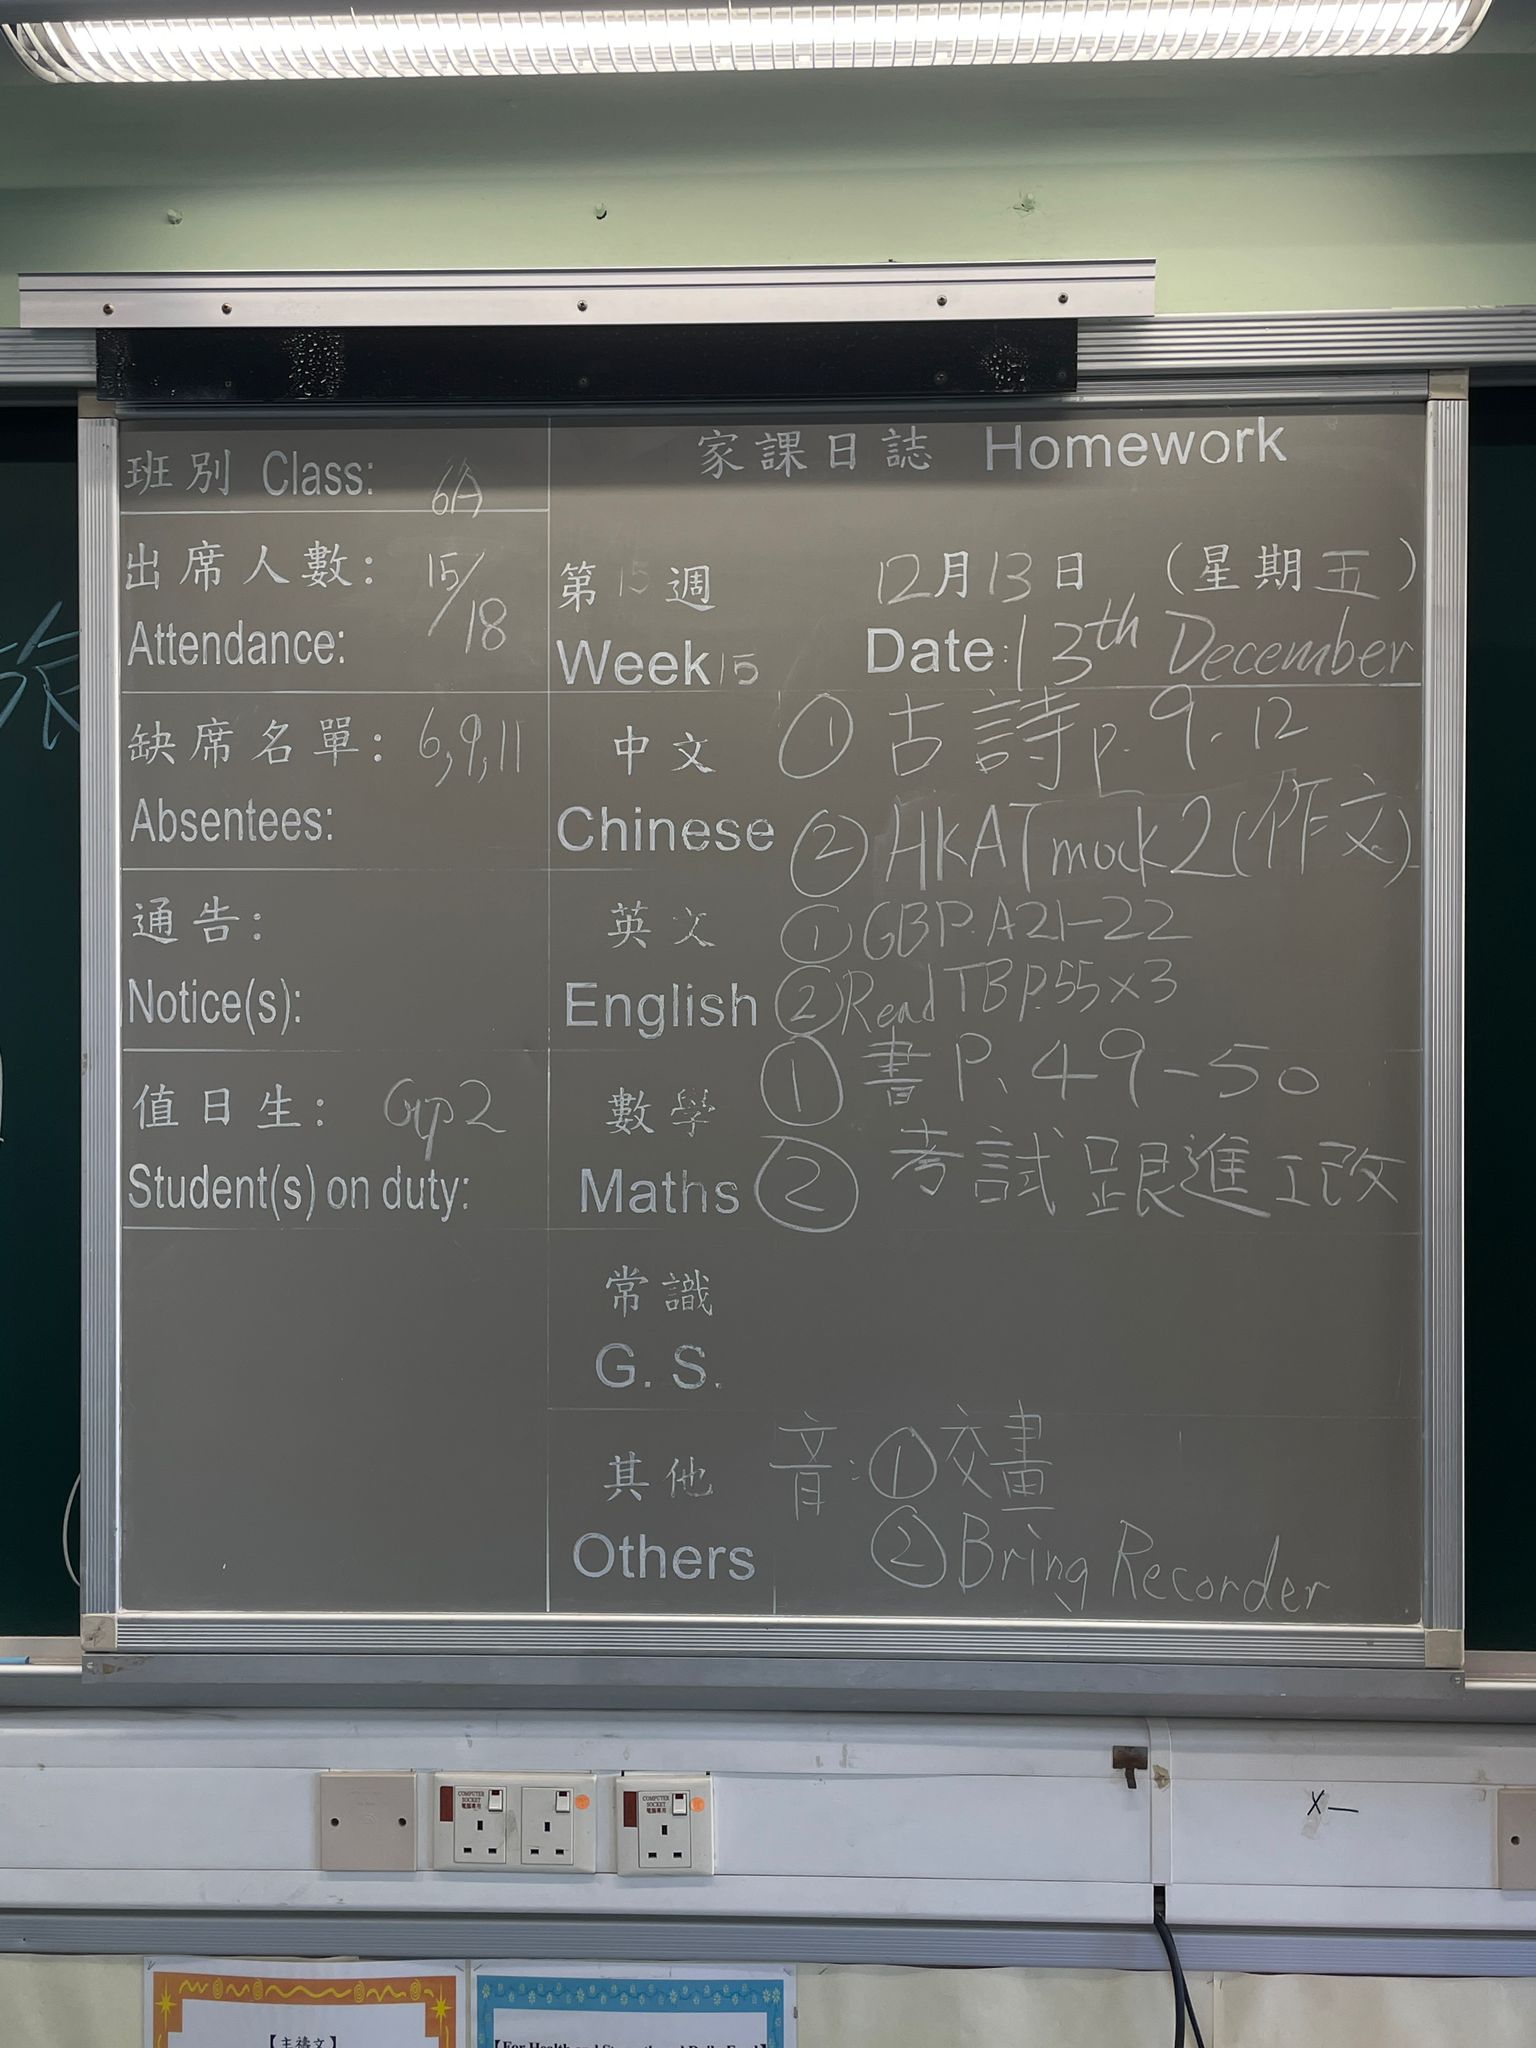 班別 Class: 6A
出席人數: 15/18
Attendance:
缺席名單: 6,9,11
Absentees:
通告:
Notice(s):
值日生: Grp2
Student(s) on duty:
家課日誌 Homework
第15週 12月13日 (星期五)
Week 15 Date: 13th December
中文 ① 古詩p.9.12
Chinese ② HKAT mock 2 (作文)
英文 ① GBP.A21-22
English ② Read TBP.55x3
數學 ① 書P.49-50
Maths ② 考試跟進工改
常識
G. S.
其他 音: ① 交畫
Others ② Bring Recorder
COMPUTER SOCKET 電腦專用
COMPUTER SOCKET 電腦專用
X—
【主禱文】